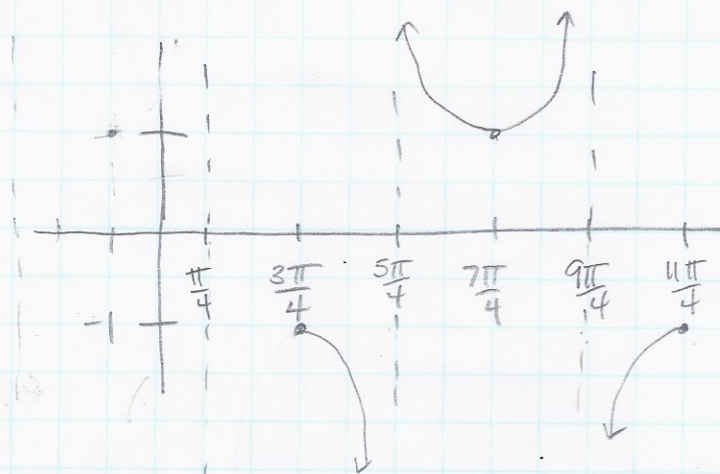 π/4 3π/4 5π/4 7π/4 9π/4 11π/4
-1